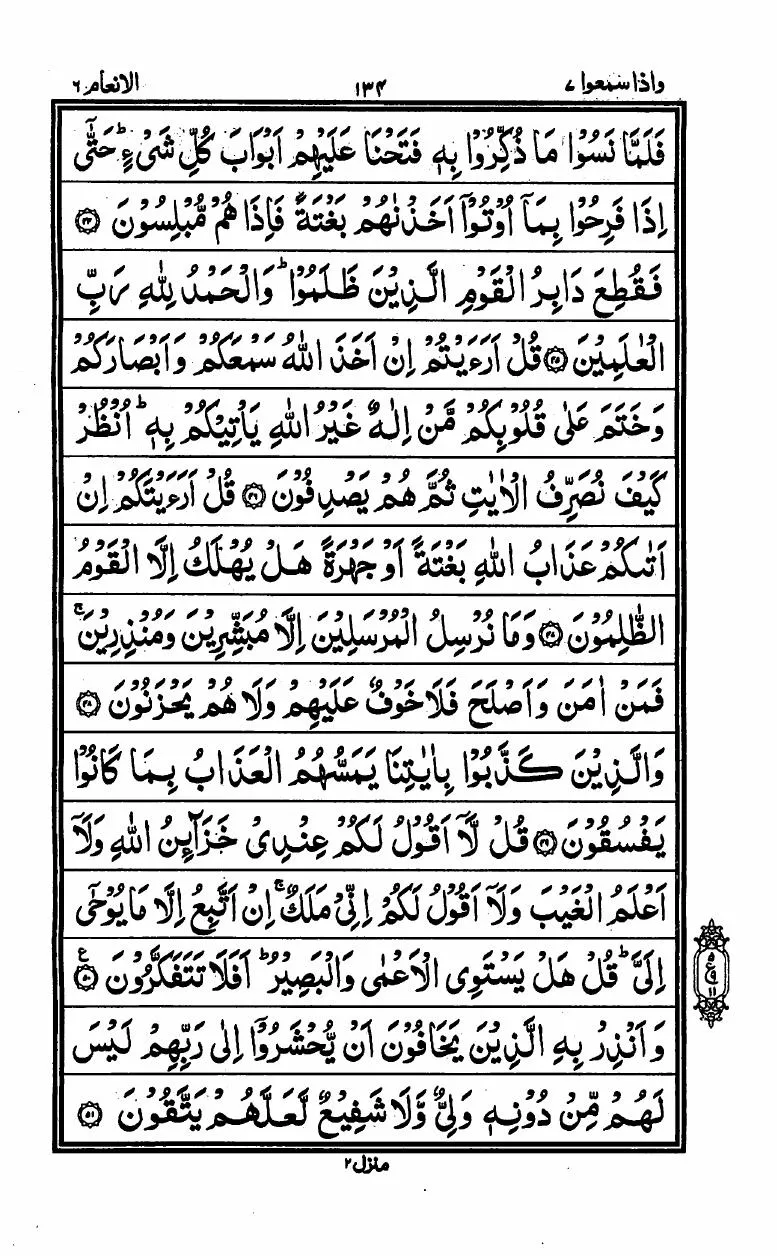 واذا سمعوا ٧ ١٣٤ الانعام ٦
فَلَمَّا نَسُوْا مَا ذُكِّرُوْا بِهٖ فَتَحْنَا عَلَيْهِمْ اَبْوَابَ كُلِّ شَيْءٍ ؕ حَتّٰۤى
اِذَا فَرِحُوْا بِمَاۤ اُوْتُوْۤا اَخَذْنٰهُمْ بَغْتَةً فَاِذَا هُمْ مُّبْلِسُوْنَ ۝۴۴
فَقُطِعَ دَابِرُ الْقَوْمِ الَّذِيْنَ ظَلَمُوْا ؕ وَالْحَمْدُ لِلّٰهِ رَبِّ
الْعٰلَمِيْنَ ۝۴۵ قُلْ اَرَءَيْتُمْ اِنْ اَخَذَ اللّٰهُ سَمْعَكُمْ وَاَبْصَارَكُمْ
وَخَتَمَ عَلٰى قُلُوْبِكُمْ مَّنْ اِلٰهٌ غَيْرُ اللّٰهِ يَاْتِيْكُمْ بِهٖ ؕ اُنْظُرْ
كَيْفَ نُصَرِّفُ الْاٰيٰتِ ثُمَّ هُمْ يَصْدِفُوْنَ ۝۴۶ قُلْ اَرَءَيْتَكُمْ اِنْ
اَتٰىكُمْ عَذَابُ اللّٰهِ بَغْتَةً اَوْ جَهْرَةً هَلْ يُهْلَكُ اِلَّا الْقَوْمُ
الظّٰلِمُوْنَ ۝۴۷ وَمَا نُرْسِلُ الْمُرْسَلِيْنَ اِلَّا مُبَشِّرِيْنَ وَمُنْذِرِيْنَ ۚ
فَمَنْ اٰمَنَ وَاَصْلَحَ فَلَا خَوْفٌ عَلَيْهِمْ وَلَا هُمْ يَحْزَنُوْنَ ۝۴۸
وَالَّذِيْنَ كَذَّبُوْا بِاٰيٰتِنَا يَمَسُّهُمُ الْعَذَابُ بِمَا كَانُوْا
يَفْسُقُوْنَ ۝۴۹ قُلْ لَّاۤ اَقُوْلُ لَكُمْ عِنْدِيْ خَزَآئِنُ اللّٰهِ وَلَاۤ
اَعْلَمُ الْغَيْبَ وَلَاۤ اَقُوْلُ لَكُمْ اِنِّيْ مَلَكٌ ۚ اِنْ اَتَّبِعُ اِلَّا مَا يُوْحٰۤى
اِلَيَّ ؕ قُلْ هَلْ يَسْتَوِي الْاَعْمٰى وَالْبَصِيْرُ ؕ اَفَلَا تَتَفَكَّرُوْنَ ۝۵۰ ع
۵ ع ۹ ۱۱
وَاَنْذِرْ بِهِ الَّذِيْنَ يَخَافُوْنَ اَنْ يُّحْشَرُوْۤا اِلٰى رَبِّهِمْ لَيْسَ
لَهُمْ مِّنْ دُوْنِهٖ وَلِيٌّ وَّلَا شَفِيْعٌ لَّعَلَّهُمْ يَتَّقُوْنَ ۝۵۱
منزل ٢